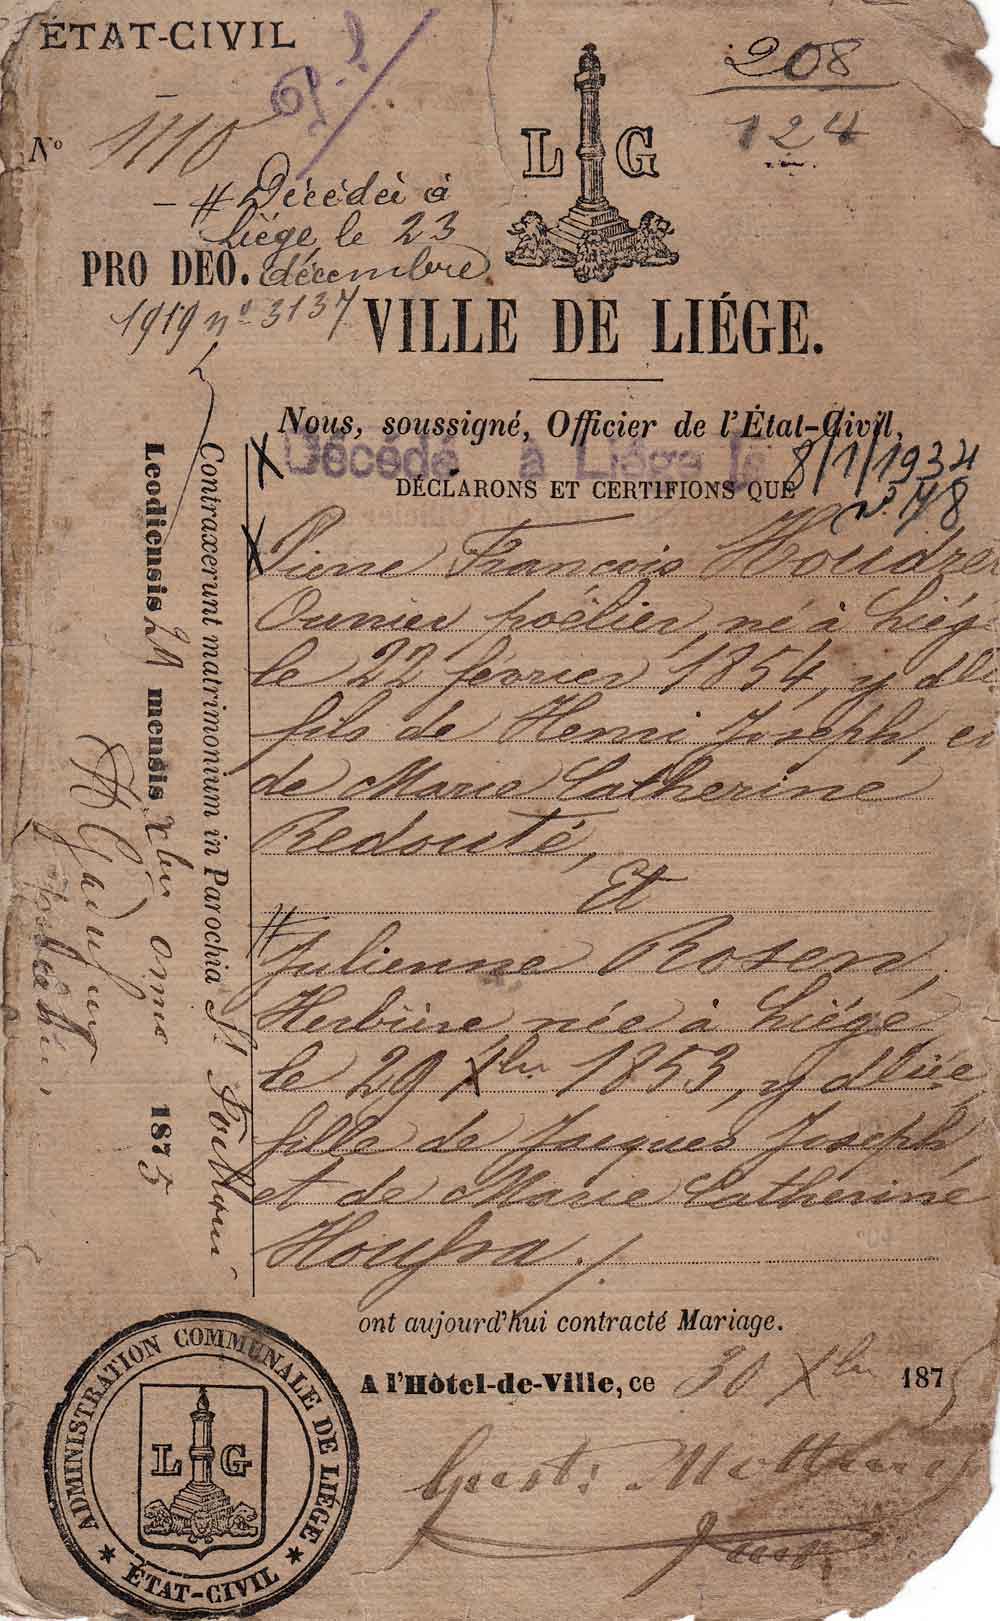 ÉTAT-CIVIL
208
124
N° 1110
L G
# Décédée à
Liége, le 23
PRO DEO. décembre
1919 n° 3137
VILLE DE LIÉGE.
Nous, soussigné, Officier de l'État-Civil,
Décédé à Liége le 8/1/1934
DÉCLARONS ET CERTIFIONS QUE
n° 48
X
X Pierre François Houdre
Ouvrier poêlier, né à Liég
le 22 février 1854, y dlié
fils de Henri Joseph, et
de Marie Catherine
Redouté,
Et
# Julienne Rosen,
Herbière née à Liége
le 29 Xbre 1853, y dliée,
fille de Jacques Joseph
et de Marie Catherine
Houfra./
ont aujourd'hui contracté Mariage.
A l'Hôtel-de-Ville, ce 30 Xbre 1875
Contraxerunt matrimonium in Parochia St
Leodiensis 21 mensis Xbris 1875
ADMINISTRATION COMMUNALE DE LIÉGE
L G
* ÉTAT-CIVIL *